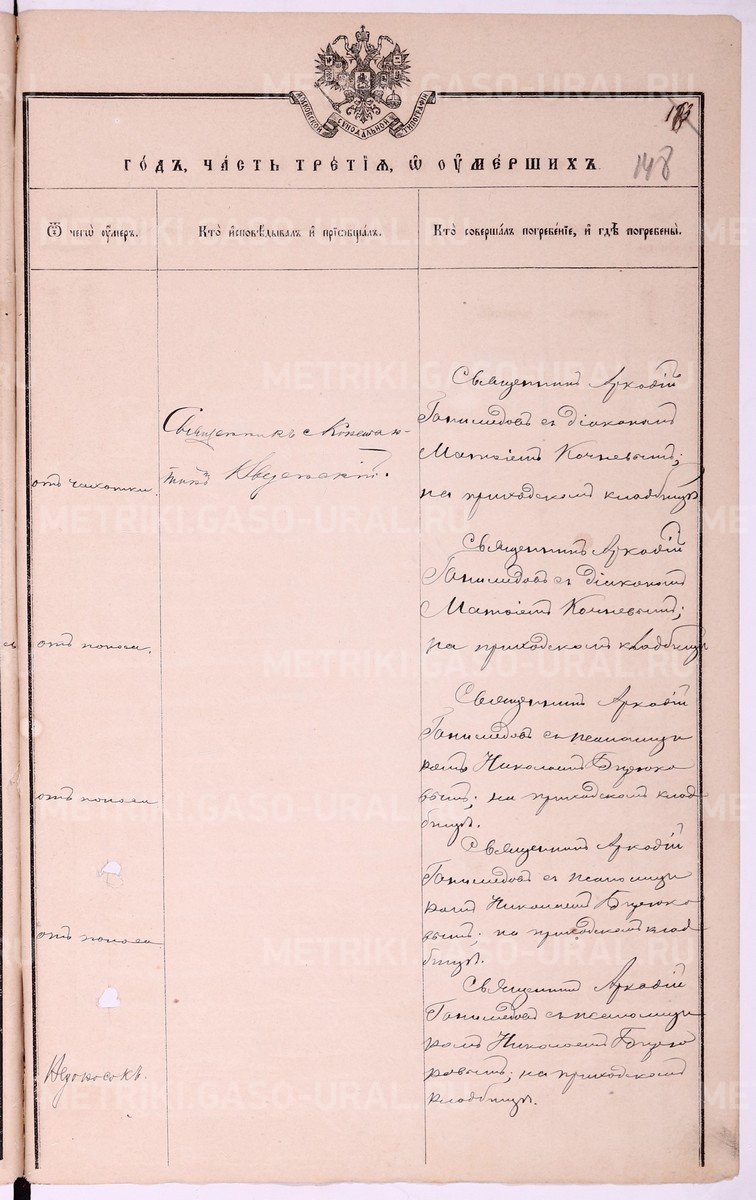 МОСКОВСКОЙ СѴНОДАЛЬНОЙ ТИПОГРАФІИ
148
ГО́ДЪ, ЧА́СТЬ ТРЕ́ТІѦ, Ѡ҆ ОУ҆МЕ́РШИХЪ.
Ѿ чегѡ̀ оу҆́меръ.
Кто̀ и҆сповѣ́дывалъ и҆ прїѡбща́лъ.
Кто̀ соверша́лъ погребе́нїе, и҆ гдѣ̀ погребены̀.
отъ чахотки.
Священникъ Константинъ
Священникъ Аркадій
Ганимедовъ съ діакономъ
Матѳіемъ Кочневымъ;
на приходскомъ кладбищѣ
отъ поноса.
Священникъ Аркадій
Ганимедовъ съ діакономъ
Матѳіемъ Кочневымъ;
на приходскомъ кладбищѣ
отъ поноса
Священникъ Аркадій
Ганимедовъ съ псаломщи
комъ Николаемъ
на приходскомъ клад
бищѣ.
отъ поноса
Священникъ Аркадій
Ганимедовъ съ псаломщи
комъ Николаемъ
на приходскомъ клад
бищѣ.
Недоносокъ.
Священникъ Аркадій
Ганимедовъ съ псаломщи
комъ Николаемъ
на приходскомъ
кладбищѣ.
METRIKI.GASO-URAL.RU